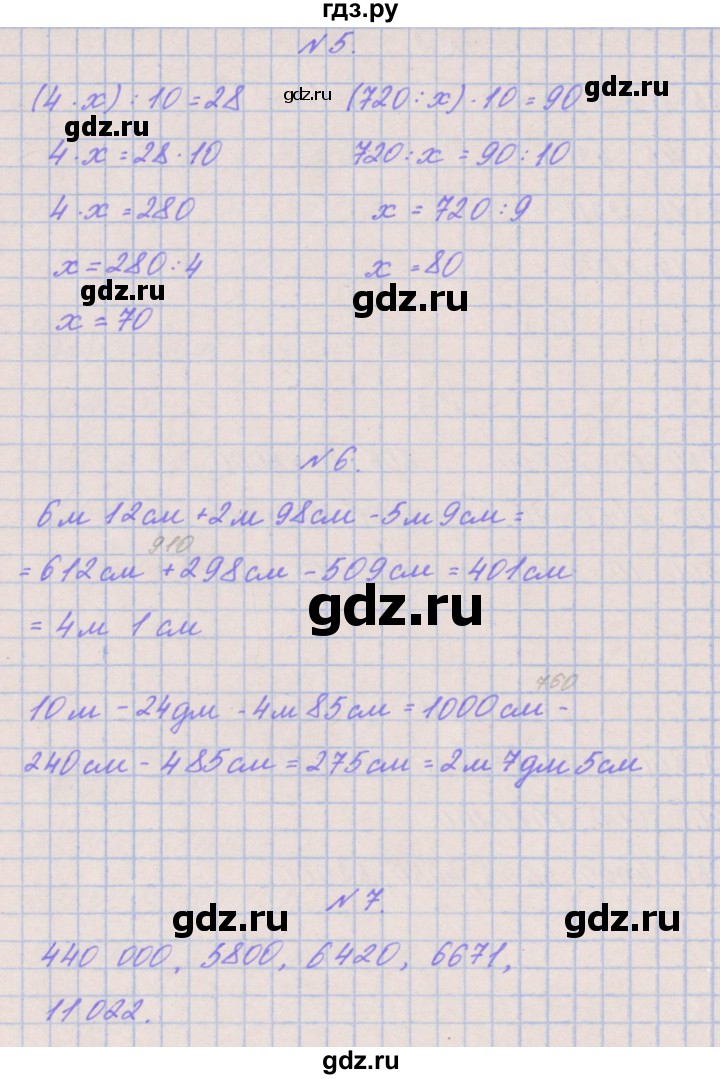 гдз.ру
N 5.
(4 · x) : 10 = 28 gdz.ru (720 : x) · 10 = 90 gdz.ru
gdz.ru
4 · x = 28 · 10 720 : x = 90 : 10
4 · x = 280 x = 720 : 9
x = 280 : 4 x = 80
gdz.ru gdz.ru
x = 70
N 6.
6м 12см + 2м 98см - 5м 9см =
910
= 612см + 298см - 509см = 401см
gdz.ru
= 4м 1см
760
10м - 24дм - 4м 85см = 1000см -
240см - 485см = 275см = 2м 7дм 5см
N 7.
gdz.ru gdz.ru
440 000, 5800, 6420, 6671,
11 022.
gdz.ru